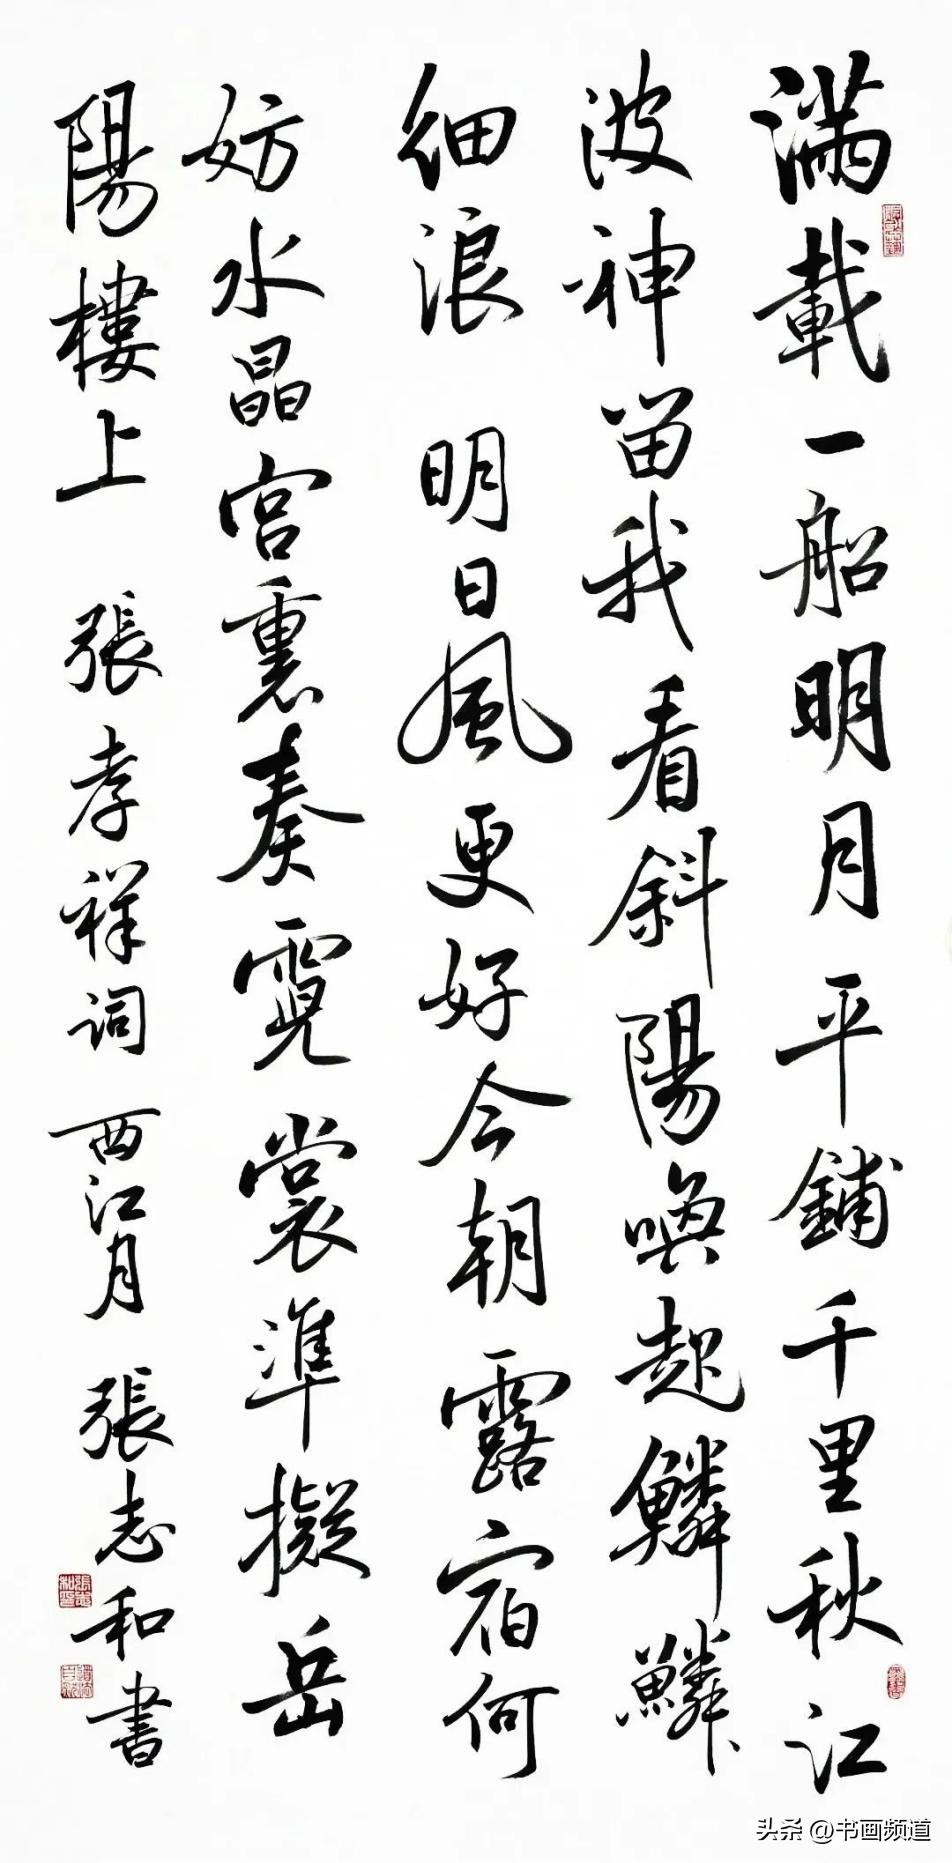 滿載一船明月平鋪千里秋江
波神留我看斜陽喚起鱗鱗
細浪 明日風更好今朝露宿何
妨水晶宮裏奏霓裳準擬岳
陽樓上 張孝祥詞 西江月 張志和書
头条 @书画频道